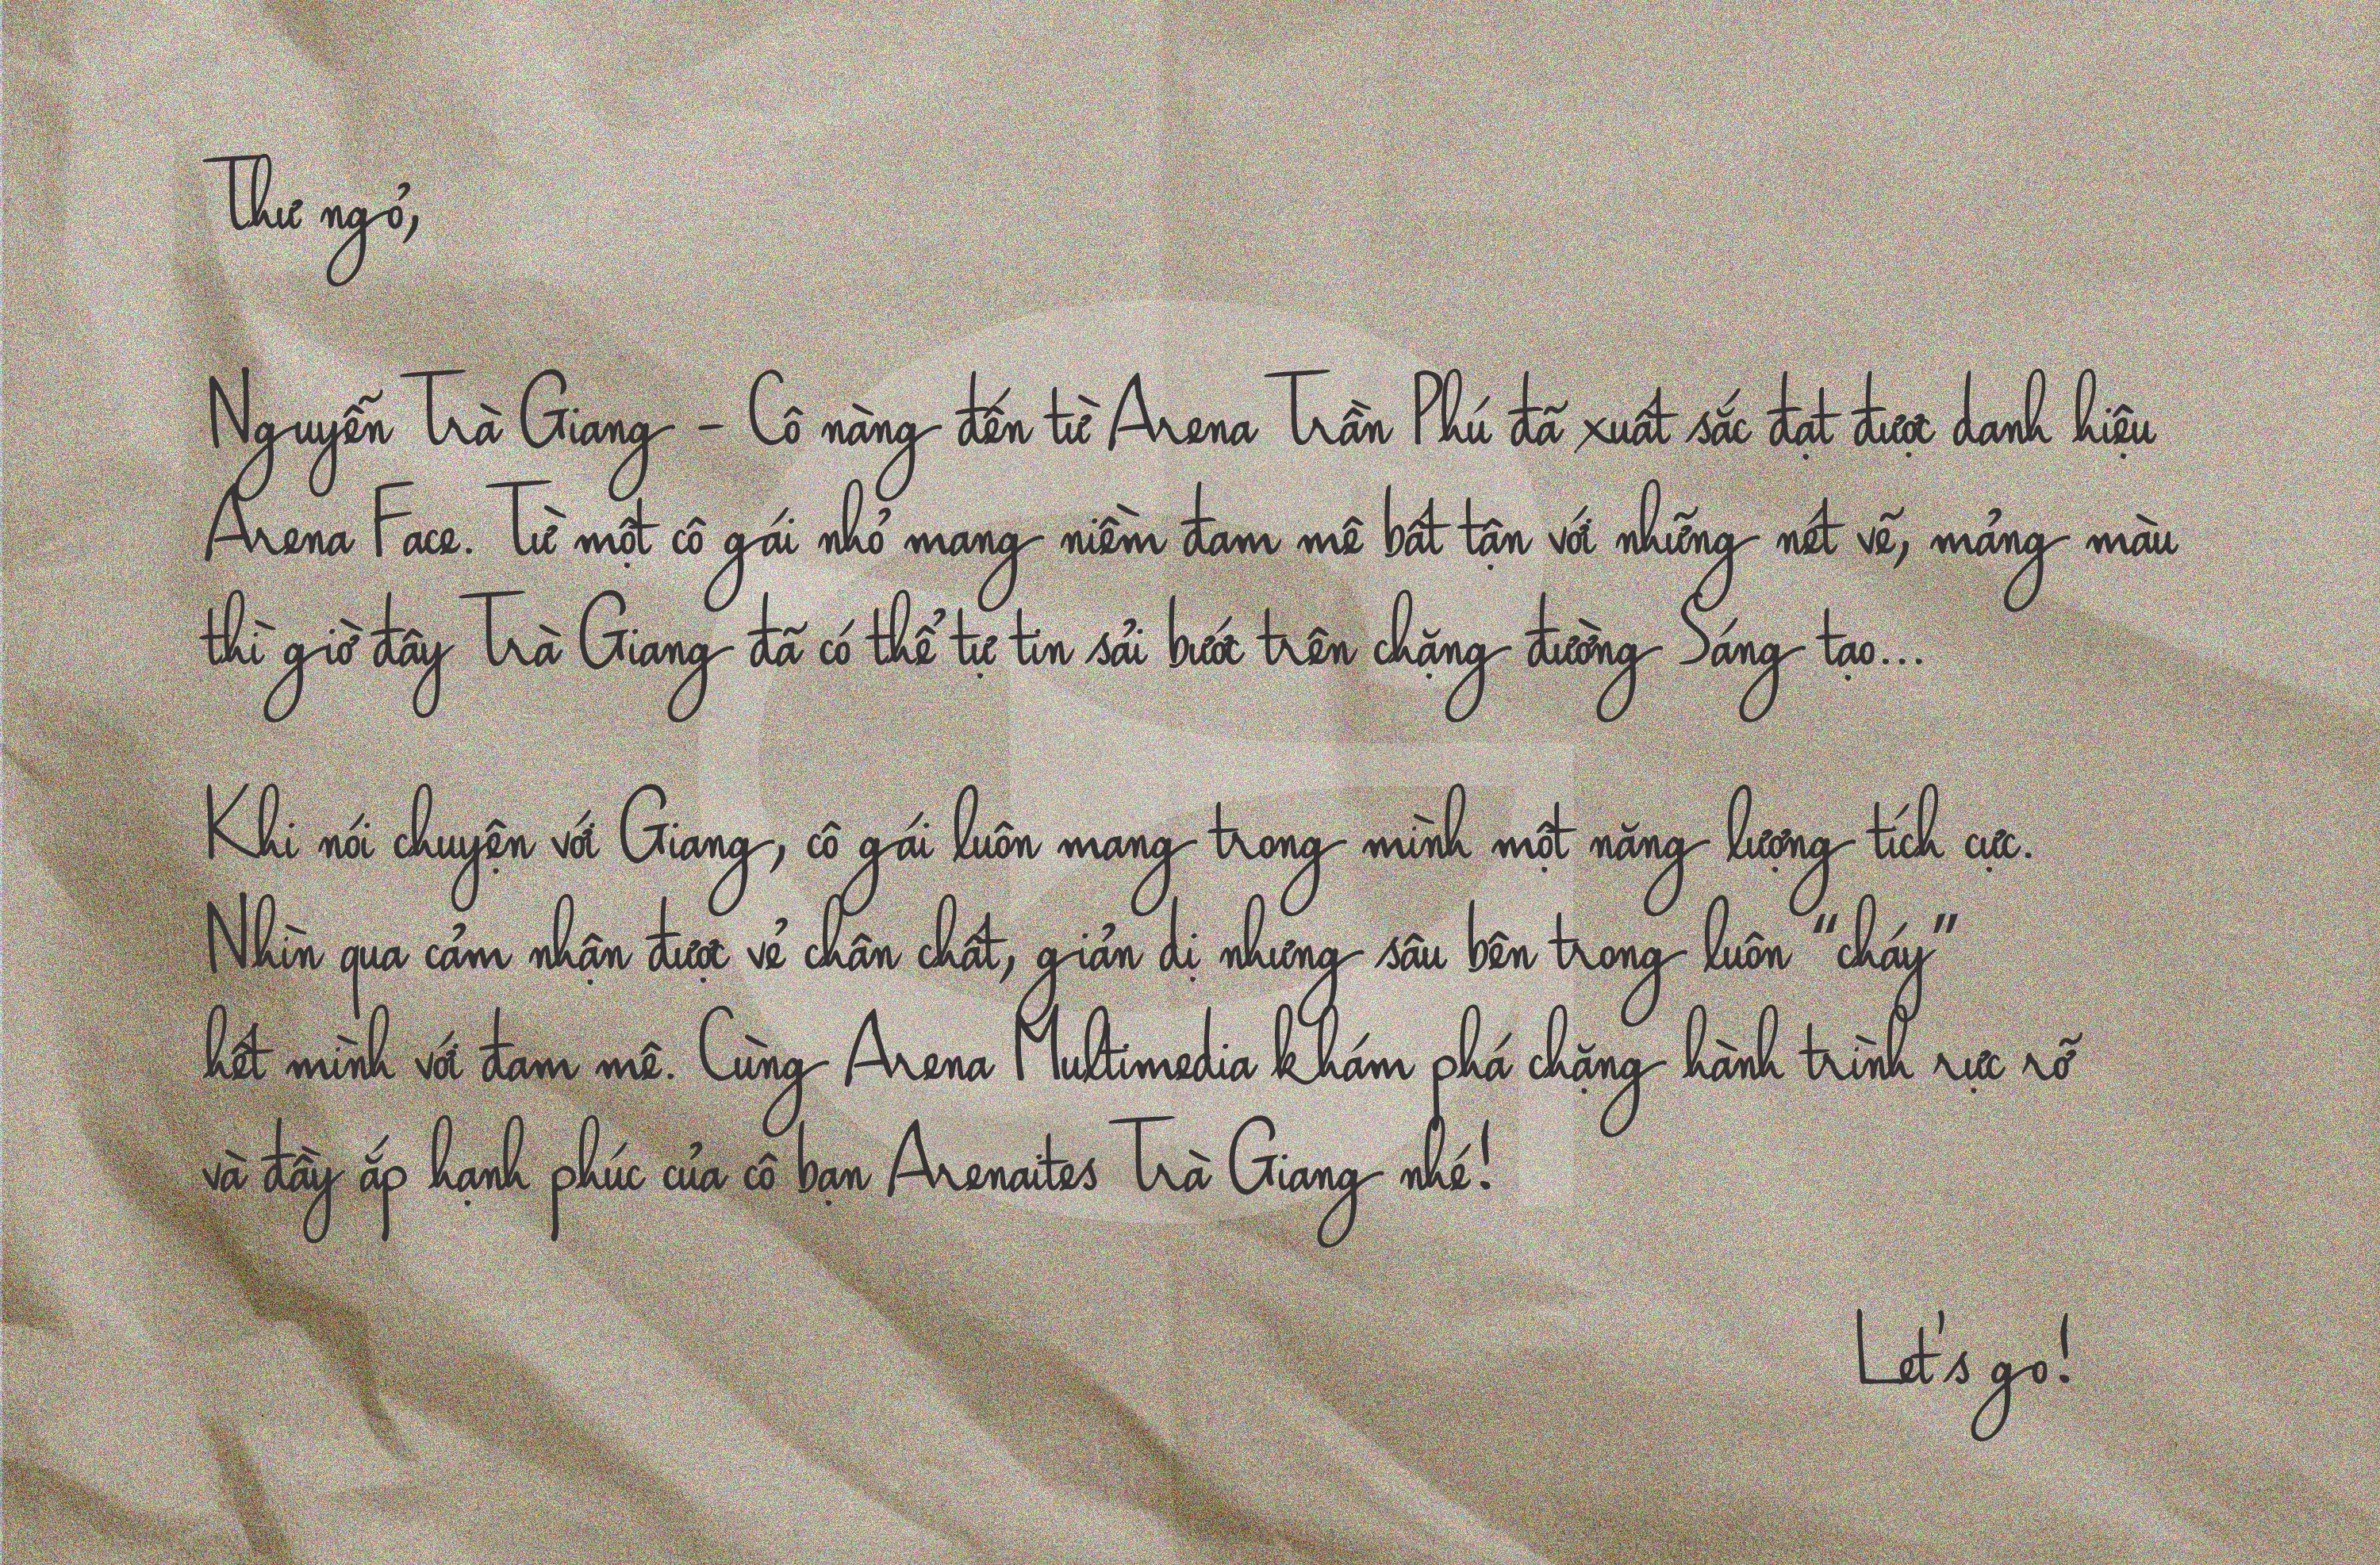 Thư ngỏ,
Nguyễn Trà Giang - Cô nàng đến từ Arena Trần Phú đã xuất sắc đạt được danh hiệu
Arena Face. Từ một cô gái nhỏ mang niềm đam mê bất tận với những nét vẽ, mảng màu
thì giờ đây Trà Giang đã có thể tự tin sải bước trên chặng đường Sáng tạo...
Khi nói chuyện với Giang, cô gái luôn mang trong mình một năng lượng tích cực.
Nhìn qua cảm nhận được vẻ chân chất, giản dị nhưng sâu bên trong luôn "cháy"
hết mình với đam mê. Cùng Arena Multimedia khám phá chặng hành trình rực rỡ
và đầy ắp hạnh phúc của cô bạn Arenaites Trà Giang nhé!
Let's go!